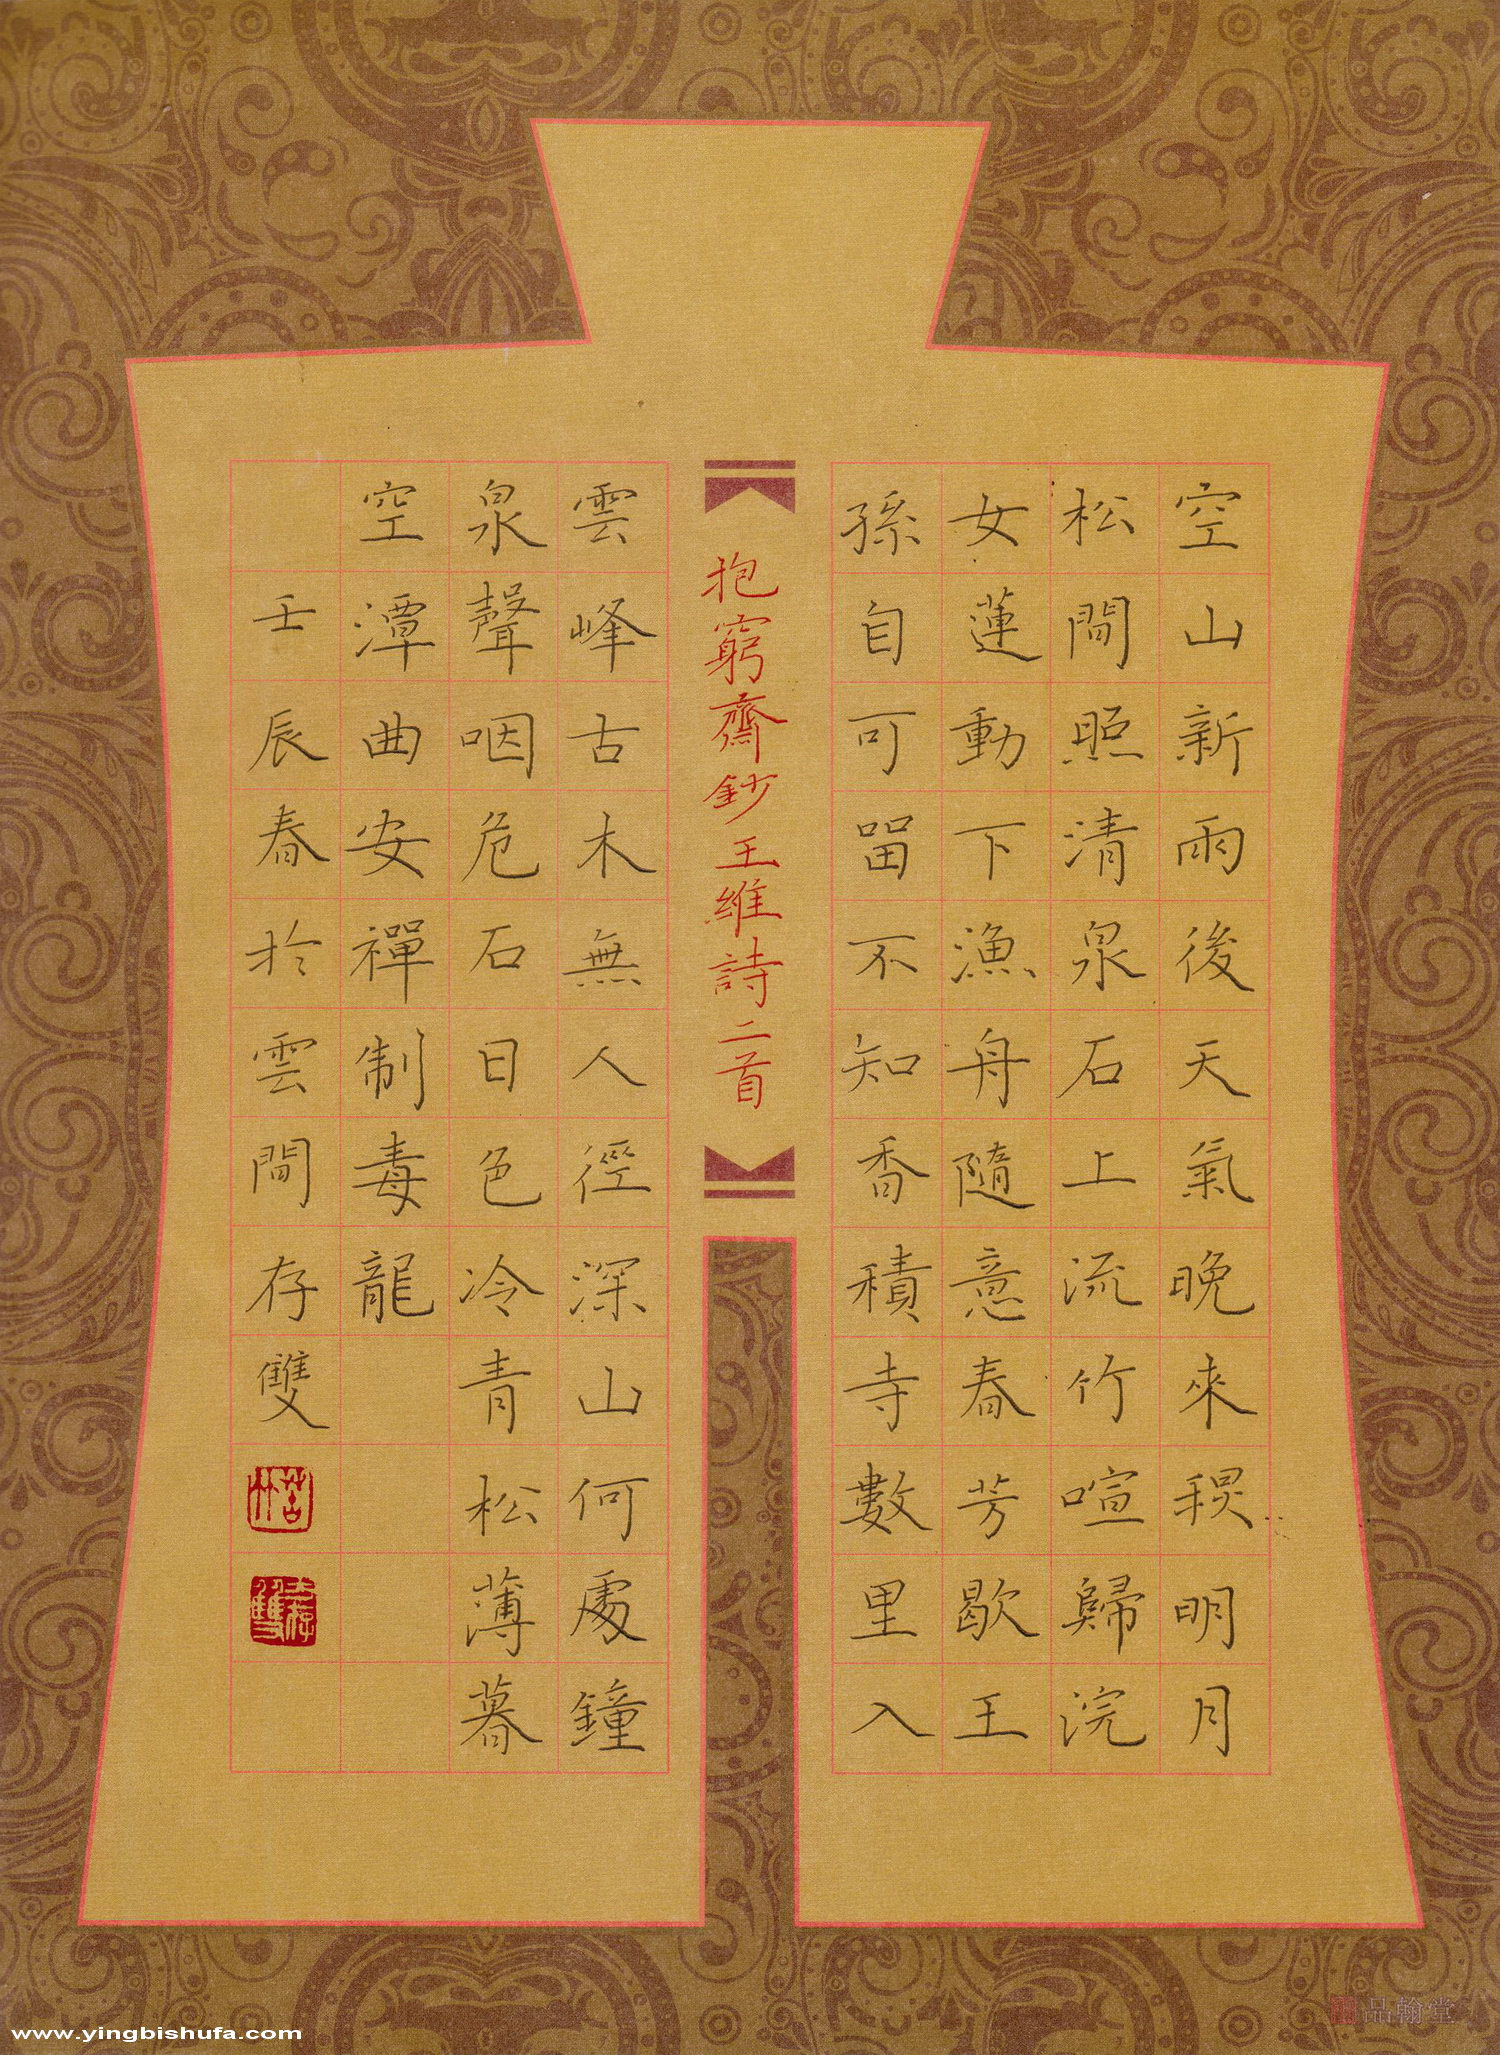 空山新雨後天氣晚來秋明月
松間照清泉石上流竹喧歸浣
女蓮動下漁舟隨意春芳歇王
孫自可留不知香積寺數里入
抱窮齋鈔王維詩二首
雲峰古木無人徑深山何處鐘
泉聲咽危石日色冷青松薄暮
空潭曲安禪制毒龍
壬辰春於雲間存雙
www.yingbishufa.com
品翰堂